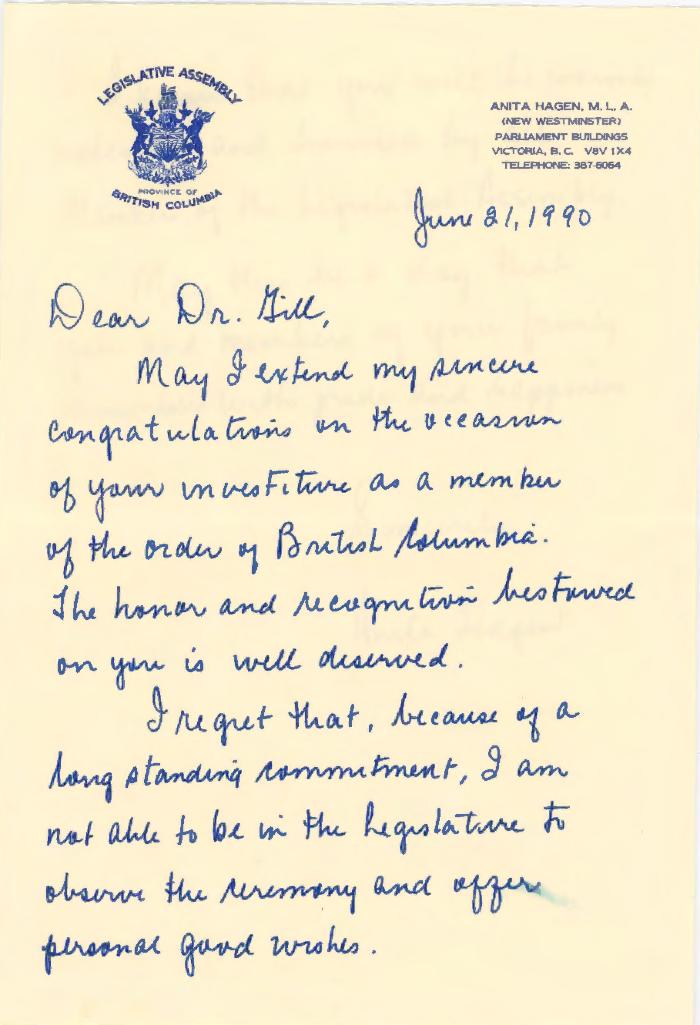 LEGISLATIVE ASSEMBLY
PROVINCE OF
BRITISH COLUMBIA
ANITA HAGEN, M. L. A.
(NEW WESTMINSTER)
PARLIAMENT BUILDINGS
VICTORIA, B. C. V8V 1X4
TELEPHONE: 387-6064
June 21, 1990
Dear Dr. Gill,
May I extend my sincere
congratulations on the occasion
of your investiture as a member
of the order of British Columbia.
The honor and recognition bestowed
on you is well deserved.
I regret that, because of a
long standing commitment, I am
not able to be in the legislature to
observe the ceremony and offer
personal good wishes.